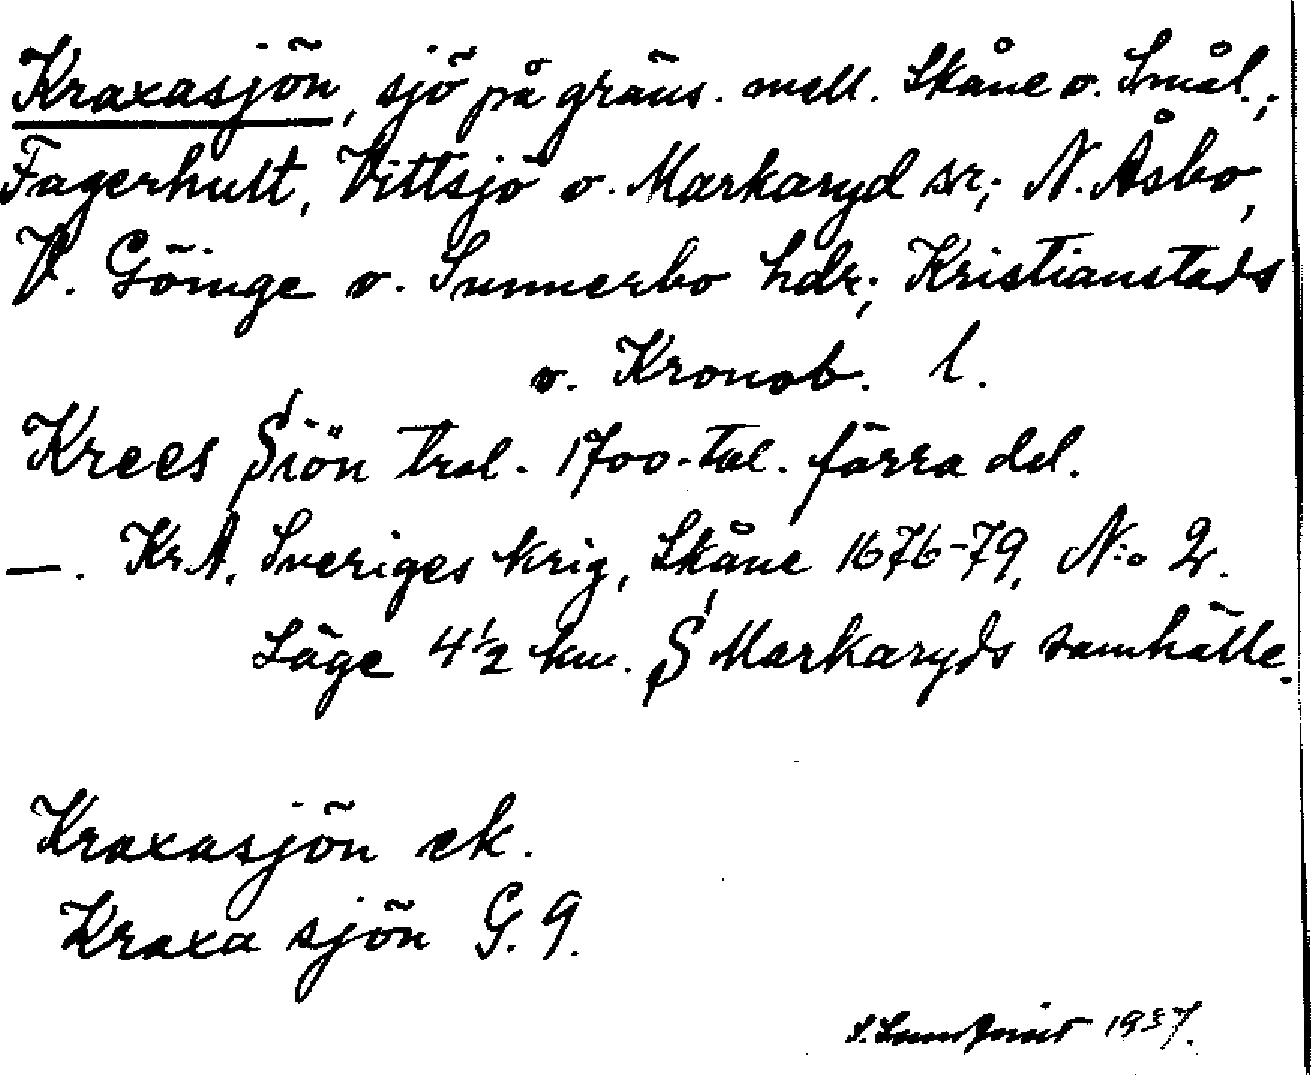 Kraxasjön, sjö på gräns. mell. Skåne o. Smål.;
Fagerhult, Vittsjö o. Markaryd sr; N. Åsbo,
V. Göinge o. Sunnerbo hdr; Kristianstads
o. Kronob. l.
Krees Siön trol. 1700-tal. förra del.
—. Kr.A. Sveriges krig, Skåne 1676-79, N:o 2.
Läge 4½ km. S Markaryds samhälle.
Kraxasjön ek.
Kraxa sjön G. 9.
1937.